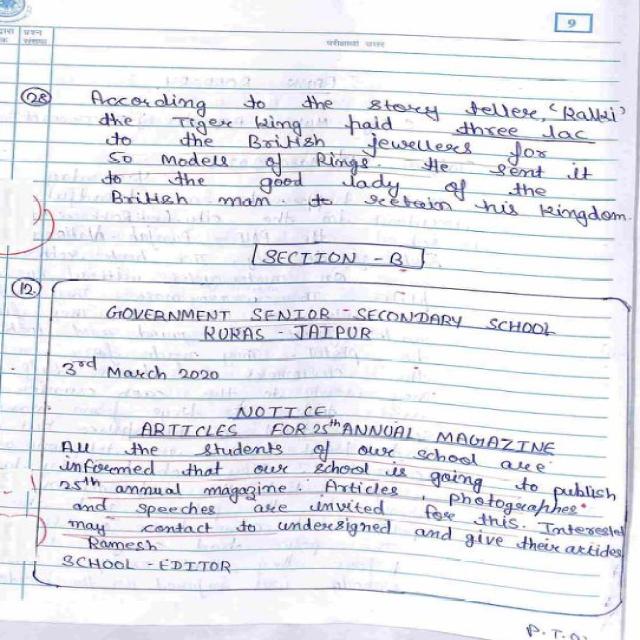 9
प्रश्न
संख्या
परीक्षार्थी उत्तर
28 According to the story teller, 'Kalki'
the Tiger king paid three lac
to the British jewellers for
50 models of Rings. He sent it
to the good lady of the
British man. to retain his kingdom.
SECTION - B
12
GOVERNMENT SENIOR - SECONDARY SCHOOL
KUKAS - JAIPUR
3rd March 2020
NOTICE
ARTICLES FOR 25th ANNUAL MAGAZINE
All the students of our school are
informed that our school is going to publish
25th annual magazine. Articles, photographes
and speeches are invited for this. Interested
may contact to undersigned and give their articles
Ramesh
SCHOOL - EDITOR
P.T.O.